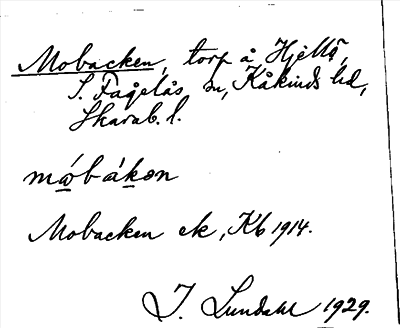 Mobacken, torp å Hjellö,
S. Fågelås sn, Kåkinds hd,
Skarab. l.
mωbákон
Mobacken ek, Kb 1914.
I. Lundahl 1929.